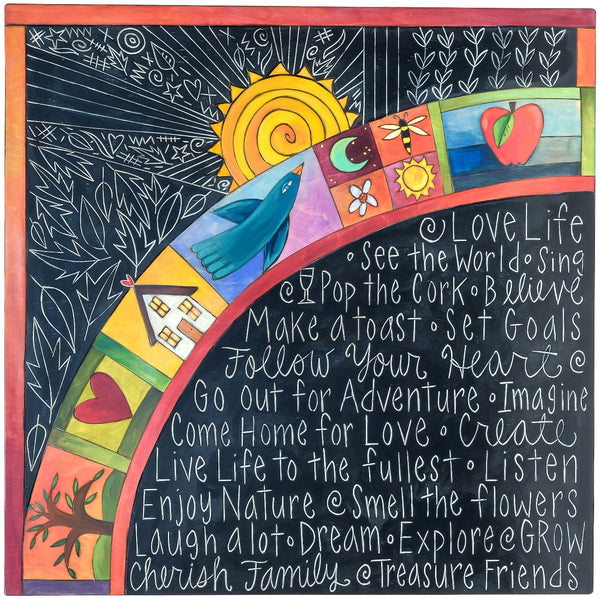 Love Life
• See the World • Sing
Pop the Cork • Believe
Make a toast • Set Goals
Follow Your Heart
Go out for Adventure • Imagine
Come Home for Love • Create
Live Life to the fullest • Listen
Enjoy Nature Smell the flowers
Laugh a lot • Dream • Explore GROW
Cherish Family Treasure Friends